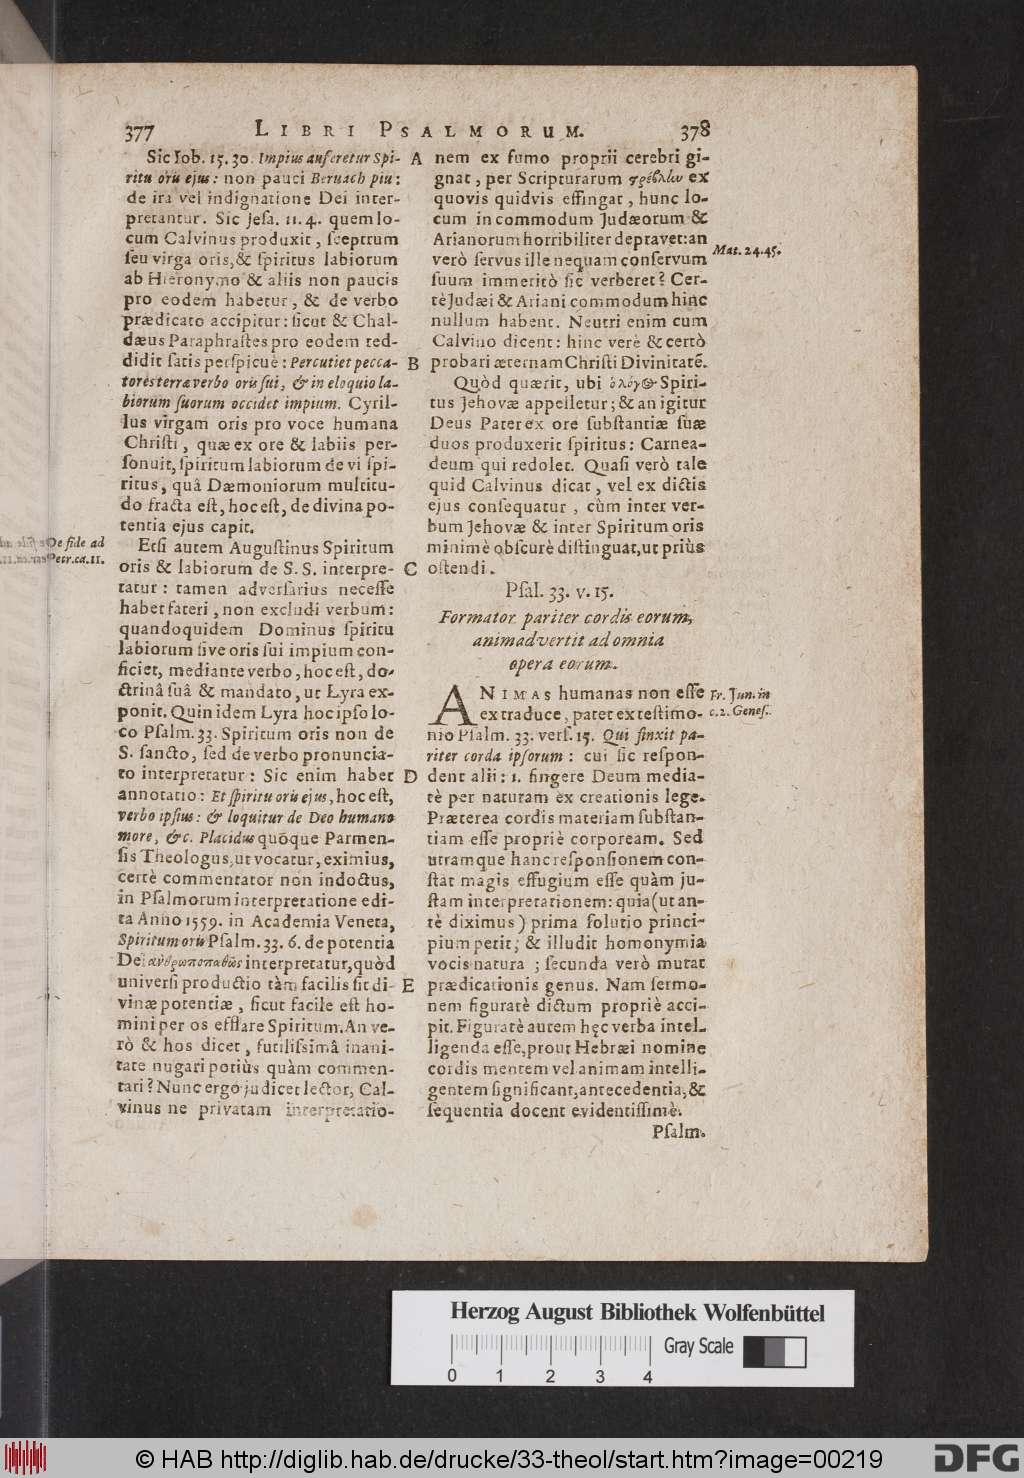 377 LIBRI PSALMORUM. 378
Sic Iob. 15. 30. Impius auferetur Spi-
ritu oris ejus: non pauci Beruach piu:
de ira vel indignatione Dei inter-
pretantur. Sic Jesa. 11. 4. quem lo-
cum Calvinus produxit, sceptrum
seu virga oris, & spiritus labiorum
ab Hieronymo & aliis non paucis
pro eodem habetur, & de verbo
prædicato accipitur: sicut & Chal-
dæus Paraphrastes pro eodem red-
didit satis perspicuè: Percutiet pecca-
tores terra verbo oris sui, & in eloquio la-
biorum suorum occidet impium. Cyril-
lus virgam oris pro voce humana
Christi, quæ ex ore & labiis per-
sonuit, spiritum labiorum de vi spi-
ritus, quâ Dæmoniorum multitu-
do fracta est, hoc est, de divina po-
tentia ejus capit.
De fide ad
Petr. ca. 11.
Etsi autem Augustinus Spiritum
oris & labiorum de S. S. interpre-
tatur: tamen adversarius necesse
habet fateri, non excludi verbum:
quandoquidem Dominus spiritu
labiorum sive oris sui impium con-
ficiet, mediante verbo, hoc est, do-
ctrinâ suâ & mandato, ut Lyra ex-
ponit. Quin idem Lyra hoc ipso lo-
co Psalm. 33. Spiritum oris non de
S. sancto, sed de verbo pronuncia-
to interpretatur: Sic enim habet
annotatio: Et spiritu oris ejus, hoc est,
verbo ipsius: & loquitur de Deo humano
more, &c. Placidus quoque Parmen-
sis Theologus, ut vocatur, eximius,
certè commentator non indoctus,
in Psalmorum interpretatione edi-
ta Anno 1559. in Academia Veneta,
Spiritum oris Psalm. 33. 6. de potentia
Dei ἀνθρωποπαθῶς interpretatur, quòd
universi productio tàm facilis sit di-
vinæ potentiæ, sicut facile est ho-
mini per os efflare Spiritum. An ve-
rò & hos dicet, futilissimâ inani-
tate nugari potiùs quàm commen-
tari? Nunc ergo judicet lector, Cal-
vinus ne privatam interpretatio-
A
B
C
D
E
nem ex fumo proprii cerebri gi-
gnat, per Scripturarum στρέβλων ex
quovis quidvis effingat, hunc lo-
cum in commodum Judæorum &
Arianorum horribiliter depravet: an
Mat. 24. 45.
verò servus ille nequam conservum
suum immeritò sic verberet? Cer-
tè Judæi & Ariani commodum hinc
nullum habent. Neutri enim cum
Calvino dicent: hinc verè & certò
probari æternam Christi Divinitatē.
Quòd quærit, ubi ὁ λόγος Spiri-
tus Jehovæ appelletur; & an igitur
Deus Pater ex ore substantiæ suæ
duos produxerit spiritus: Carnea-
deum qui redolet. Quasi verò tale
quid Calvinus dicat, vel ex dictis
ejus consequatur, cùm inter ver-
bum Jehovæ & inter Spiritum oris
minimè obscurè distinguat, ut priùs
ostendi.
Psal. 33. v. 15.
Formator pariter cordis eorum,
animadvertit ad omnia
opera eorum.
ANIMAS humanas non esse
Fr. Jun. in
c. 2. Genes.
ex traduce, patet ex testimo-
nio Psalm. 33. vers. 15. Qui finxit pa-
riter corda ipsorum: cui sic respon-
dent alii: 1. fingere Deum media-
tè per naturam ex creationis lege.
Præterea cordis materiam substan-
tiam esse propriè corpoream. Sed
utramque hanc responsionem con-
stat magis effugium esse quàm ju-
stam interpretationem: quia (ut an-
tè diximus) prima solutio princi-
pium petit; & illudit homonymia
vocis natura; secunda verò mutat
prædicationis genus. Nam sermo-
nem figuratè dictum propriè acci-
pit. Figuratè autem hęc verba intel-
ligenda esse, prout Hebræi nomine
cordis mentem vel animam intelli-
gentem significant, antecedentia, &
sequentia docent evidentissimè.
Psalm.
Herzog August Bibliothek Wolfenbüttel
Gray Scale
0 1 2 3 4
© HAB http://diglib.hab.de/drucke/33-theol/start.htm?image=00219
DFG